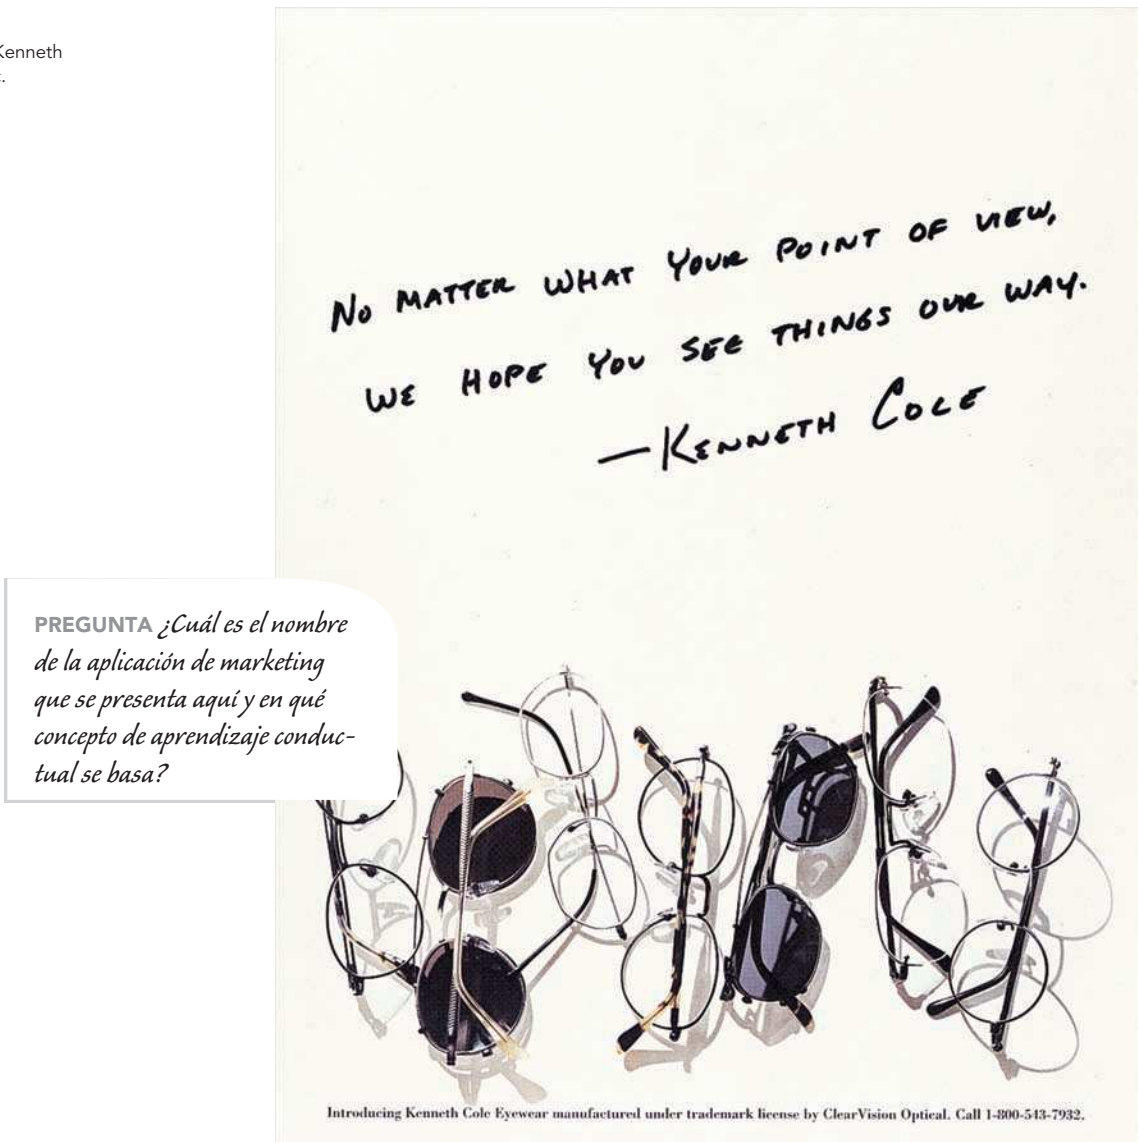 Kenneth
No MATTER WHAT YOUR POINT OF VIEW,
WE HOPE YOU SEE THINGS OUR WAY.
—KENNETH COLE
PREGUNTA ¿Cuál es el nombre
de la aplicación de marketing
que se presenta aquí y en qué
concepto de aprendizaje conduc-
tual se basa?
Introducing Kenneth Cole Eyewear manufactured under trademark license by ClearVision Optical. Call 1-800-543-7932.